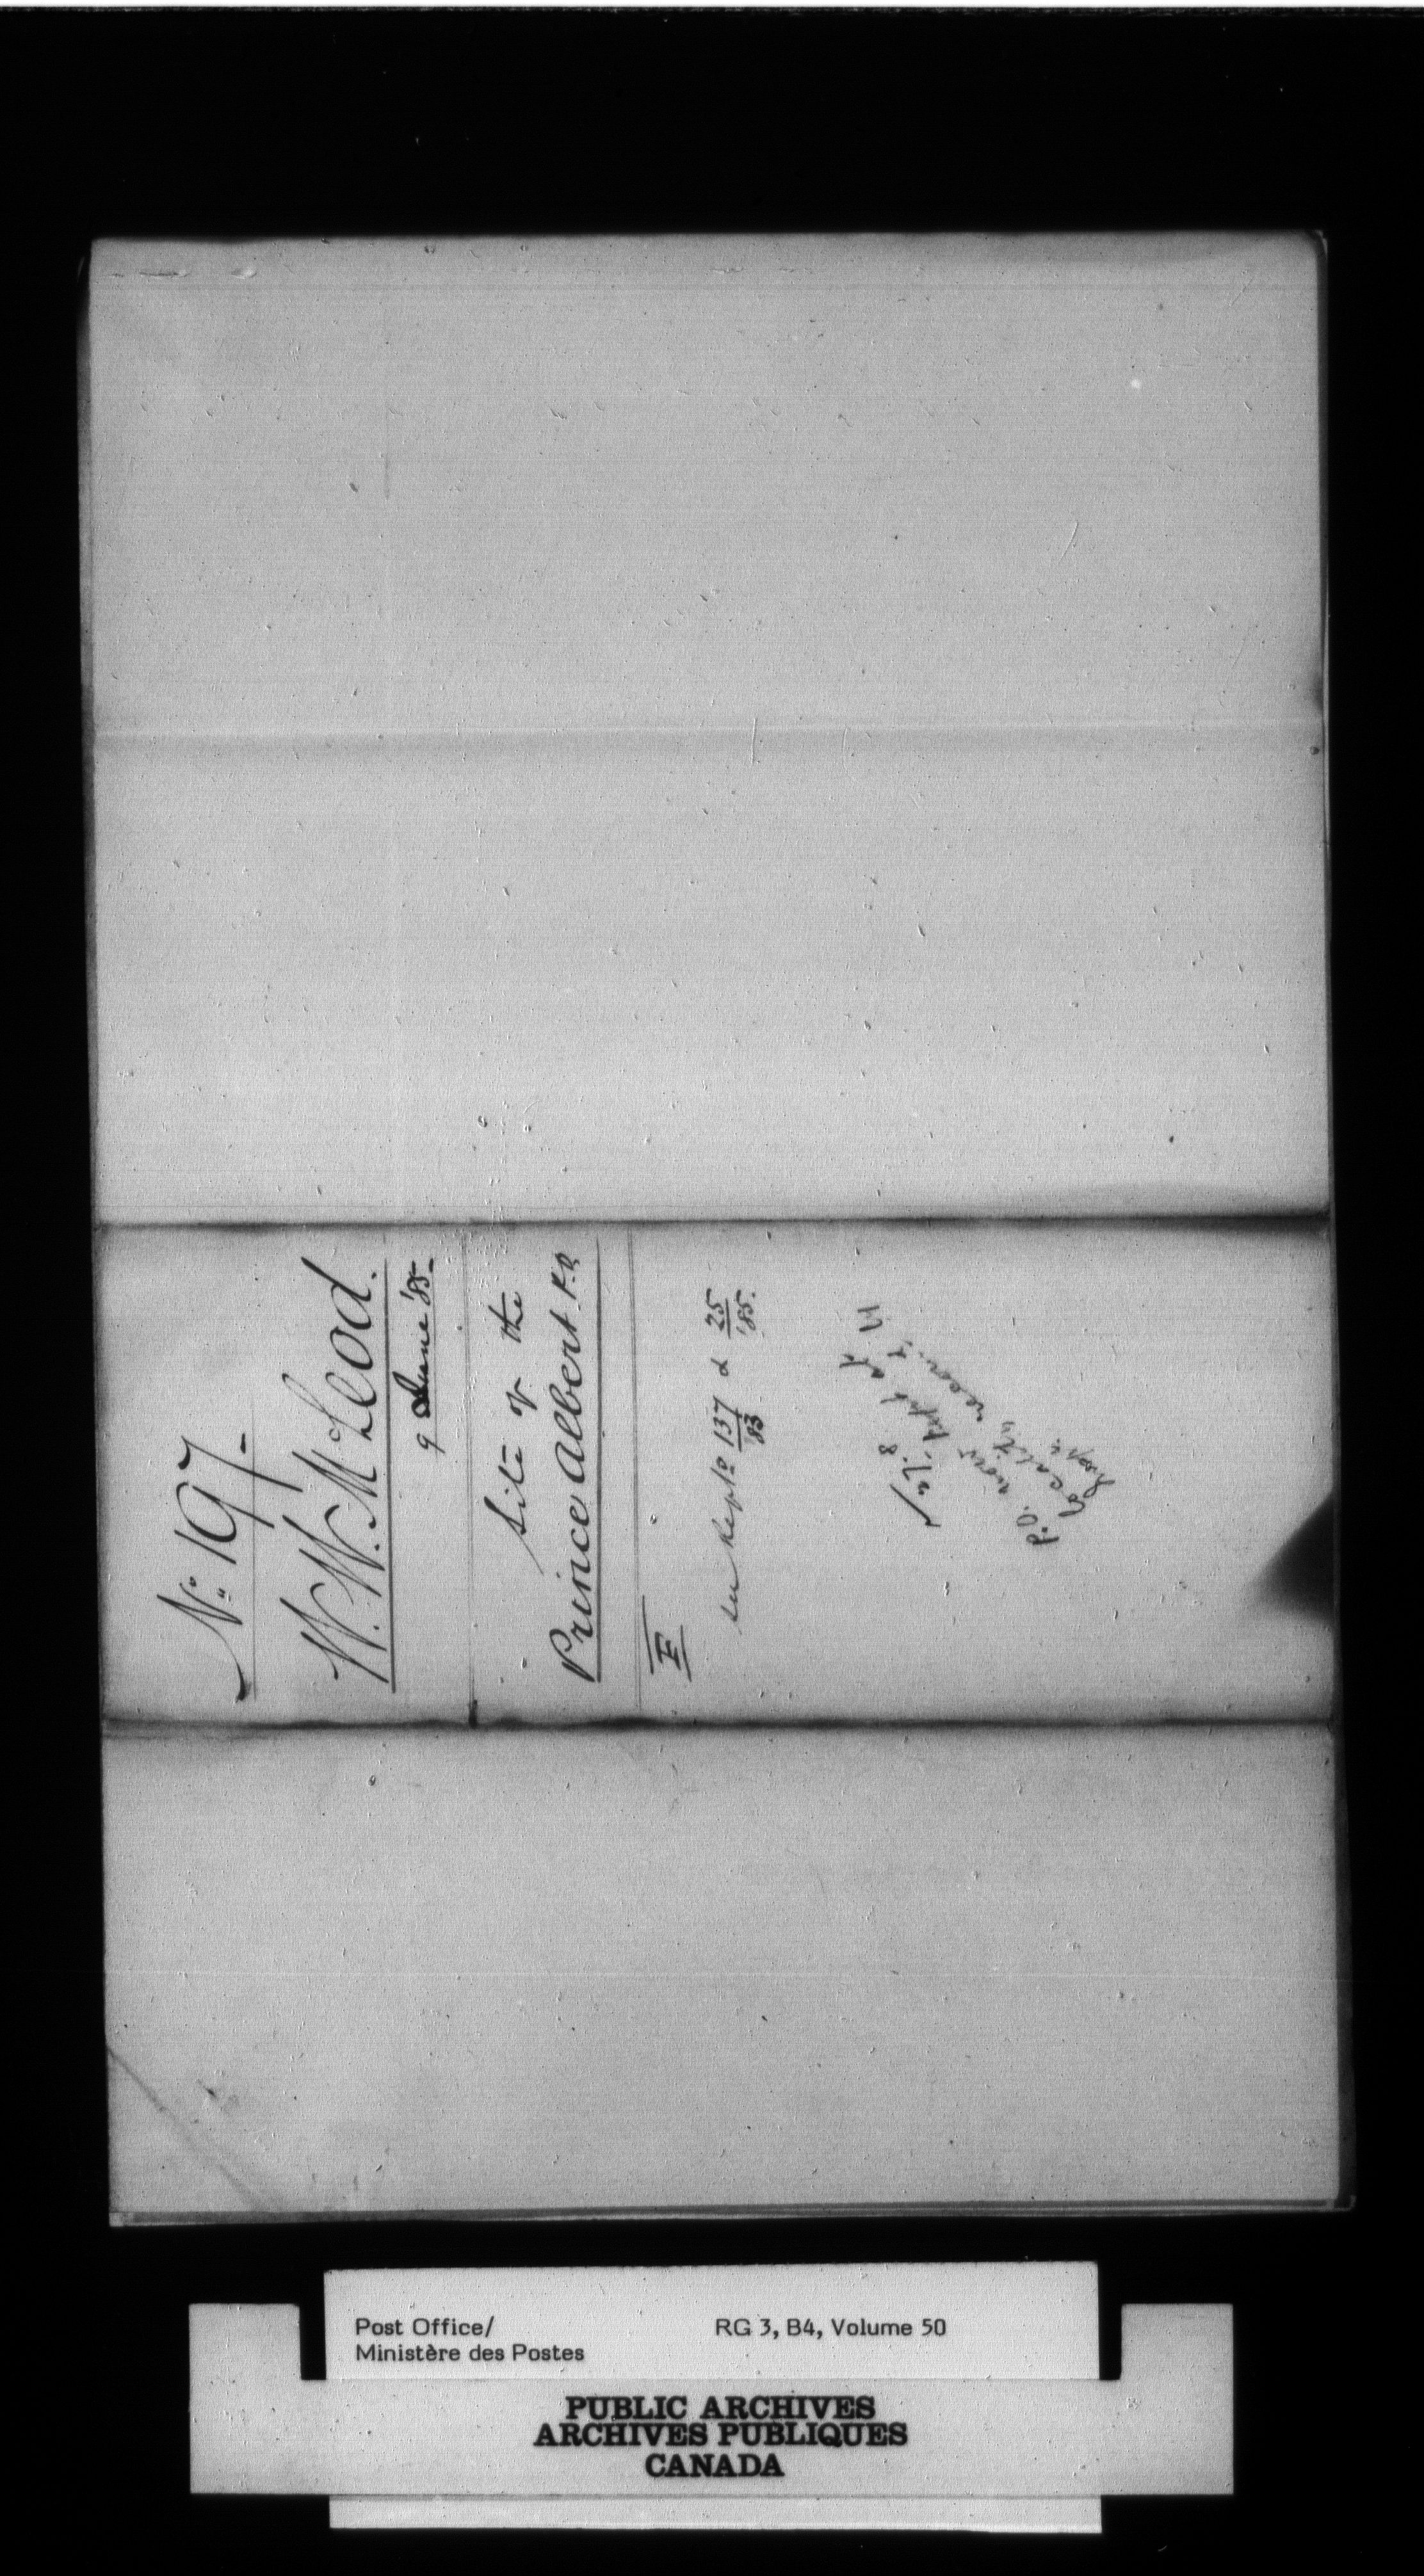 No. 197-
W. W. McLeod.
9 June '85-
Site of the
Prince Albert P.O.
F
see Rept 137/83 & 25/85.
27.8
P.O. now
locality
Post Office/
Ministère des Postes
RG 3, B4, Volume 50
PUBLIC ARCHIVES
ARCHIVES PUBLIQUES
CANADA